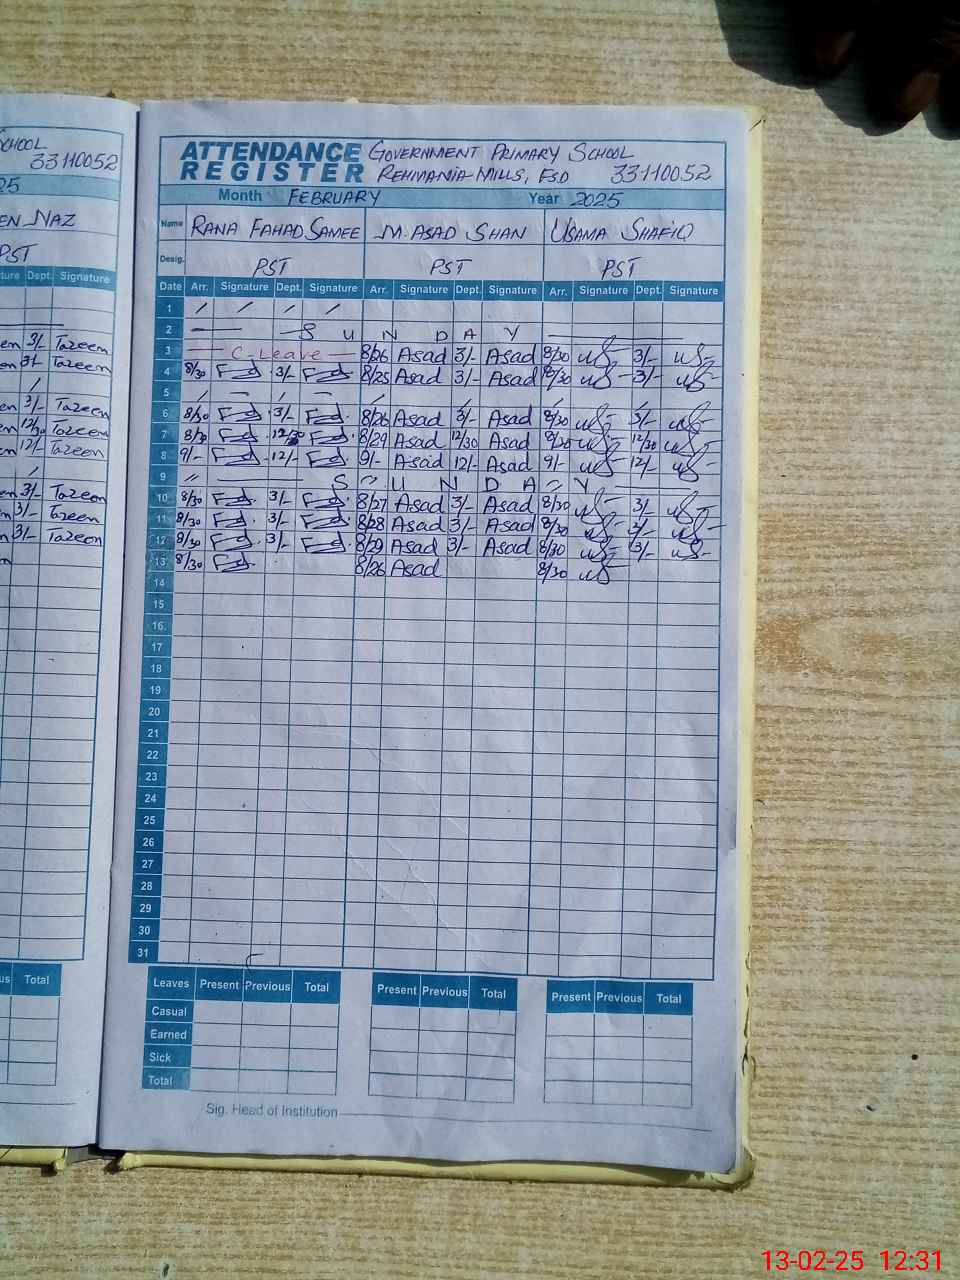 SCHOOL
33110052
25
EN NAZ
PST
ture Dept. Signature
en 3/- Tazeen
en 3/- Tazeen
en 3/- Tazeen
en 12/30 Tazeen
en 12/- Tazeen
en 3/- Tazeen
en 3/- Tazeen
en 3/- Tazeen
us Total
ATTENDANCE GOVERNMENT PRIMARY SCHOOL
REGISTER REHMANIA MILLS, FSD 33110052
Month FEBRUARY Year 2025
Name RANA FAHAD SAMEE M. ASAD SHAN USAMA SHAFIQ
Desig. PST PST PST
Date Arr. Signature Dept. Signature Arr. Signature Dept. Signature Arr. Signature Dept. Signature
1 / / / /
2 S U N D A Y
3 C-Leave 8/26 Asad 3/- Asad 8/30 3/-
4 8/30 3/- 8/25 Asad 3/- Asad 8/30 3/-
5
6 8/30 3/- 8/26 Asad 3/- Asad 8/30 3/-
7 8/30 12/30 8/29 Asad 12/30 Asad 8/30 12/30
8 9/- 12/- 9/- Asad 12/- Asad 9/- 12/-
9 S U N D A Y
10 8/30 3/- 8/27 Asad 3/- Asad 8/30 3/-
11 8/30 3/- 8/28 Asad 3/- Asad 8/30
12 8/30 3/- 8/29 Asad 3/- Asad 8/30 3/-
13 8/30 8/26 Asad 8/30
14
15
16
17
18
19
20
21
22
23
24
25
26
27
28
29
30
31
Leaves Present Previous Total Present Previous Total Present Previous Total
Casual
Earned
Sick
Total
Sig. Head of Institution
13-02-25 12:31